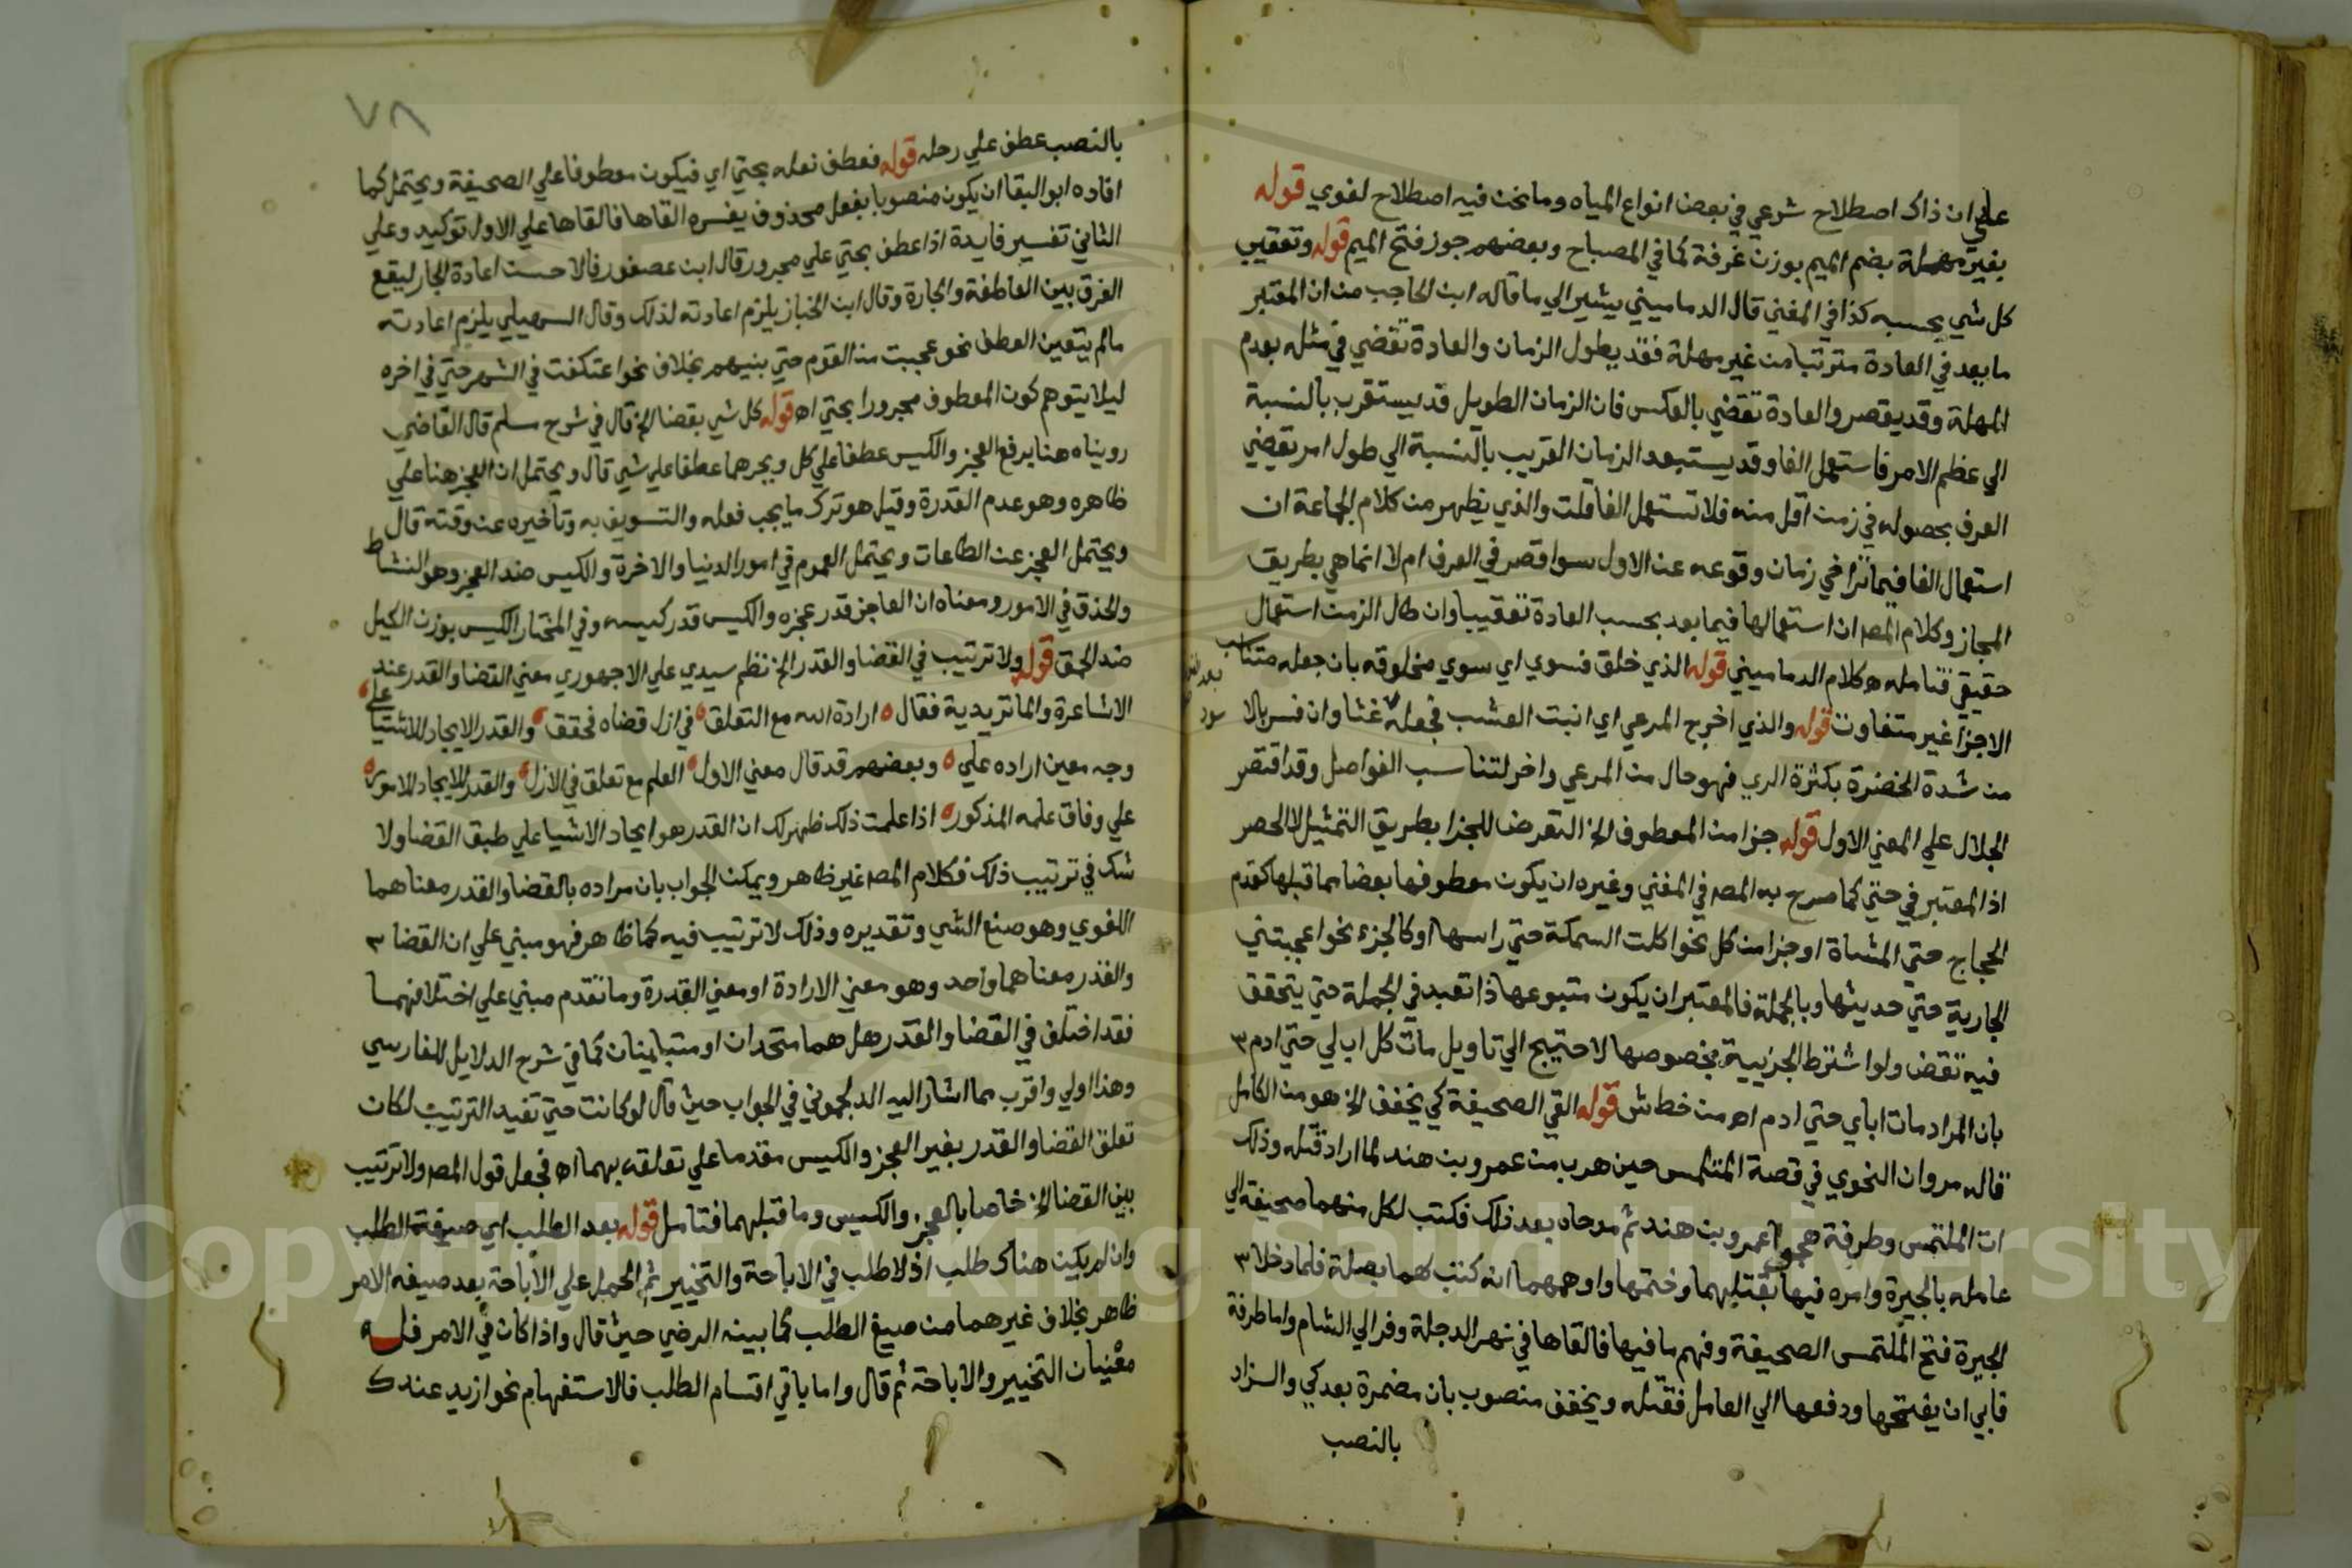 علي ان ذاك اصطلاح شرعي في بعض انواع المياه وما نحن فيه اصطلاح لغوي قوله
بغير مهملة بضم الميم بوزن غرفة كما في المصباح وبعضهم جوز فتح الميم قوله وتعقيب
كل شي بحسبه كذا في المغني قال الدماميني يشير الي ما قاله ابن الحاجب من ان المعتبر
ما يعد في العادة مترتبا من غير مهلة فقد يطول الزمان والعادة تقضي في مثله بعدم
المهلة وقد يقصر والعادة تقضي بالعكس فان الزمان الطويل قد يستقرب بالنسبة
الي عظم الامر فاستعمل الفا وقد يستبعد الزمان القريب بالنسبة الي طول امر يقضي
العرف بحصوله في زمن اقل منه فلا تستعمل الفا قلت والذي يظهر من كلام الجماعة ان
استعمال الفا فيما تراخي زمان وقوعه عن الاول سوا قصر في العرف ام لا انما هي بطريق
المجاز وكلام المصه ان استعمالها فيما بعد بحسب العادة تعقيبا وان طال الزمن استعمال
حقيقي فتامله اه كلام الدماميني قوله الذي خلق فسوي اي سوي مخلوقه بان جعله متناسب
الاجزا غير متفاوت قوله والذي اخرج المرعي اي انبت العشب فجعله غثا وان فسر بالا سود
من شدة الخضرة بكثرة الري فهو حال من المرعي واخر لتناسب الفواصل وقد اقتصر
الجلال علي المعني الاول قوله جزا من المعطوف الخ التعرض للجزا بطريق التمثيل لا الحصر
اذ المعتبر في حتي كما صرح به المصه في المغني وغيره ان يكون معطوفها بعضا مما قبلها كقدم
الحجاج حتي المشاة او جزا من كل نحو اكلت السمكة حتي راسها او كالجزء نحو اعجبتني
الجارية حتي حديثها وبالجملة فالمعتبر ان يكون متبوعها ذا تعدد في الجملة حتي يتحقق
فيه تقض ولو اشترط الجزيية بخصوصها لاحتيج الي تاويل مات كل اب لي حتي ادم ٣
بان المراد مات اباي حتي ادم اه من خط ش قوله القي الصحيفة كي يخفف الخ هو من الكامل
قاله مروان النحوي في قصة المتلمس حين هرب من عمرو بن هند لما اراد قتله وذلك
ان الملتمس وطرفة هجوا عمرو بن هند ثم مدحاه بعد ذلك فكتب لكل منهما صحيفة الي
عامله بالحيرة وامره فيها بقتلهما وختمها واوهمهما انه كتب لهما بصلة فلما دخلا ٣
الحيرة فتح الملتمس الصحيفة وفهم ما فيها فالقاها في نهر الدجلة وفر الي الشام واما طرفة
فابي ان يفتحها ودفعها الي العامل فقتله ويخفف منصوب بان مضمرة بعد كي والزاد
بالنصب
٧٨
بالنصب عطف علي رحله قوله فعطف نعله بحتي اي فيكون معطوفا علي الصحيفة ويحتمل كما
افاده ابو البقا ان يكون منصوبا بفعل محذوف يفسره القاها فالقاها علي الاول توكيد وعلي
الثاني تفسير فايدة اذا عطف بحتي علي مجرور قال ابن عصفور فالاحسن اعادة الجار ليقع
الفرق بين العاطفة والجارة وقال ابن الخباز يلزم اعادته لذلك وقال السهيلي يلزم اعادته
مالم يتعين العطف نحو عجبت من القوم حتي بنيهم بخلاف نحو اعتكفت في الشهر حتي في اخره
ليلا يتوهم كون المعطوف مجرورا بحتي اه قوله كل شي بقضا الخ قال في شرح مسلم قال القاضي
رويناه هنا برفع العجز والكيس عطفا علي كل وبجرهما عطفا علي شي قال ويحتمل ان العجز هنا علي
ظاهره وهو عدم القدرة وقيل هو ترك ما يجب فعله والتسويف به وتاخيره عن وقته قال
ويحتمل العجز عن الطاعات ويحتمل العموم في امور الدنيا والاخرة والكيس ضد العجز وهو النشاط
والحذق في الامور ومعناه ان العاجز قدر عجزه والكيس قدر كيسه وفي المختار الكيس بوزن الكيل
ضد الحمق قوله ولا ترتيب في القضا والقدر الخ نظم سيدي علي الاجهوري معني القضا والقدر عند
الاشاعرة والماتريدية فقال ارادة الله مع التعلق في ازل قضاه فحقق والقدر الايجاد للاشيا علي
وجه معين اراده علي وبعضهم قد قال معني الاول العلم مع تعلق في الازل والقدر الايجاد للامور
علي وفاق علمه المذكور اذا علمت ذلك ظهر لك ان القدر هو ايجاد الاشيا علي طبق القضا ولا
شك في ترتيب ذلك فكلام المصه غير ظاهر ويمكن الجواب بان مراده بالقضا والقدر معناهما
اللغوي وهو صنع الشي وتقديره وذلك لا ترتيب فيه كما ظاهر فهو مبني علي ان القضا ٣
والقدر معناهما واحد وهو معني الارادة او معني القدرة وما تقدم مبني علي اختلافهما
فقد اختلف في القضا والقدر هل هما متحدان او متباينان كما في شرح الدلايل للفارسي
وهذا اولي واقرب مما اشار اليه الدلجموني في الجواب حيث قال لو كانت حتي تفيد الترتيب لكان
تعلق القضا والقدر بغير العجز والكيس مقدما علي تعلقه بهما اه فجعل قول المصه ولا ترتيب
بين القضا الخ خاصا بالعجز والكيس وما قبلهما فتامل قوله بعد الطلب اي صيغة الطلب
وان لم يكن هناك طلب اذ لا طلب في الاباحة والتخيير ثم الحمل علي الاباحة بعد صيغه الامر
ظاهر بخلاف غيرهما من صيغ الطلب كما بينه الرضي حيث قال واذا كان في الامر فله
معنيان التخيير والاباحة ثم قال واما باقي اقسام الطلب فالاستفهام نحو ازيد عندك